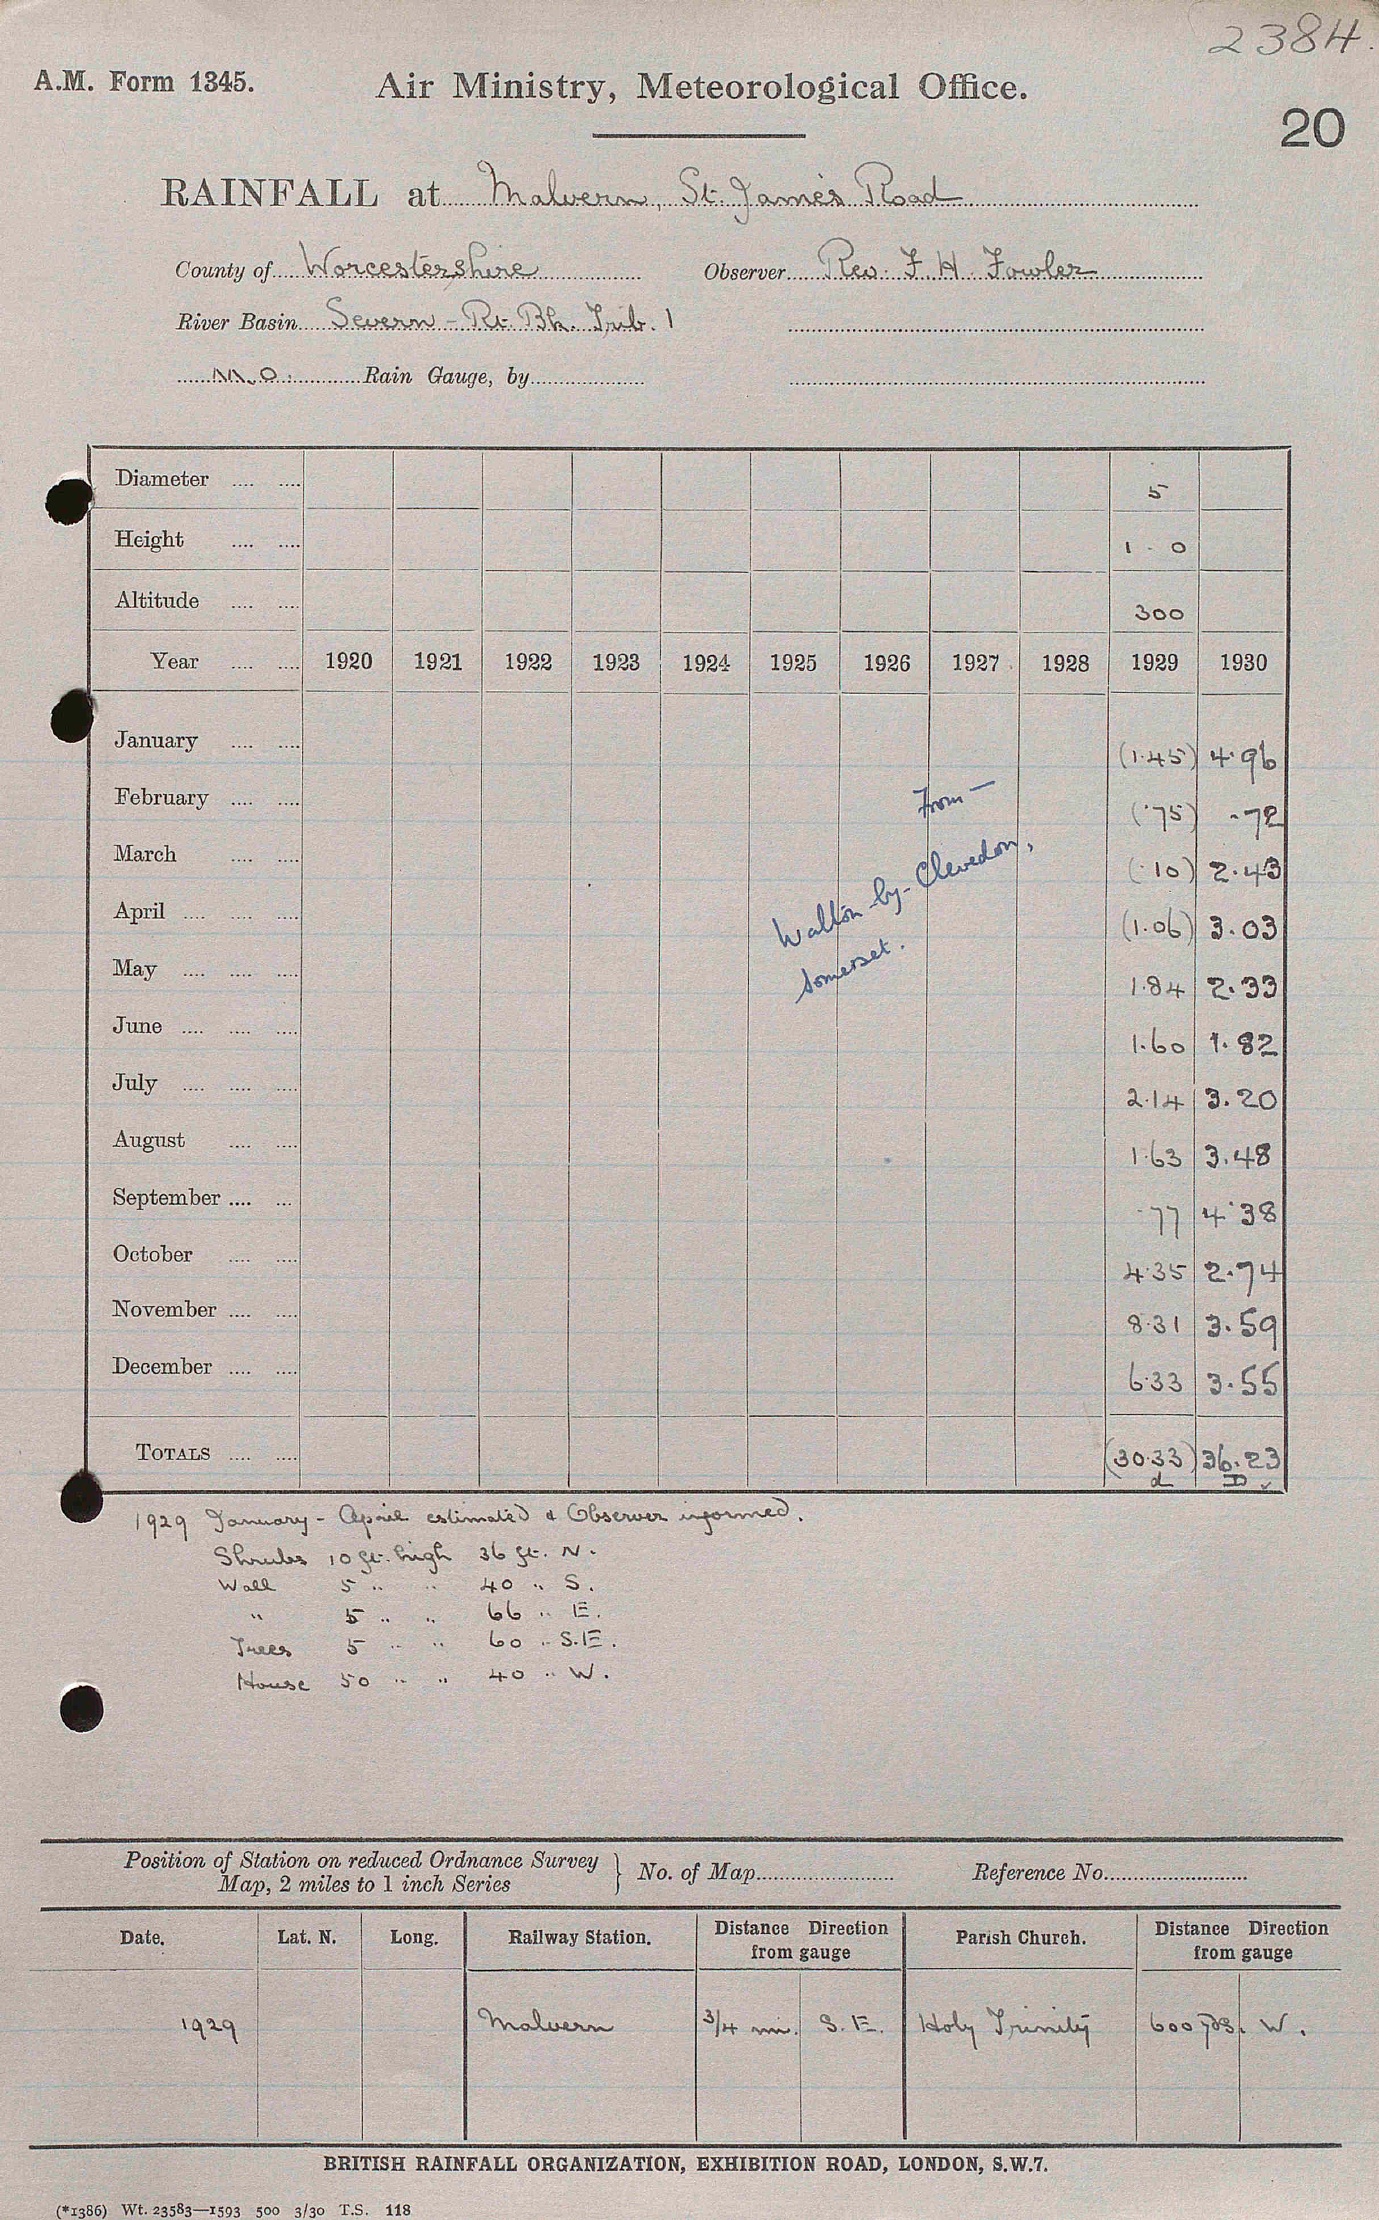 2384.
A.M. Form 1345. Air Ministry, Meteorological Office.
20
RAINFALL at Malvern, St. James's Road
County of Worcestershire Observer Rev. F. H. Fowler
River Basin Severn - Rt. Bk. Trib. 1
M.O. Rain Gauge, by
Diameter .... .... 5
Height .... .... 1 - 0
Altitude .... .... 300
Year .... .... 1920 1921 1922 1923 1924 1925 1926 1927 1928 1929 1930
January .... .... (1.45) 4.96
From —
February .... .... (.75) .72
March .... .... (.10) 2.43
Walton-by-Clevedon,
April .... .... .... (1.06) 3.03
Somerset.
May .... .... .... 1.84 2.33
June .... .... .... 1.60 1.82
July .... .... .... 2.14 3.20
August .... .... 1.63 3.48
September .... ... .77 4.38
October .... .... 4.35 2.74
November .... .... 8.31 3.59
December .... .... 6.33 3.55
TOTALS .... .... (30.33) 36.23
d D ✓
1929 January - April estimated & Observer informed.
Shrubs 10 ft. high 36 ft. N.
Wall 5 " " 40 " S.
" 5 " " 66 " E.
Trees 5 " " 60 " S.E.
House 50 " " 40 " W.
Position of Station on reduced Ordnance Survey
Map, 2 miles to 1 inch Series } No. of Map Reference No.
Date. Lat. N. Long. Railway Station. Distance Direction from gauge Parish Church. Distance Direction from gauge
1929 Malvern 3/4 mi. S.E. Holy Trinity 600 yds. W.
BRITISH RAINFALL ORGANIZATION, EXHIBITION ROAD, LONDON, S.W.7.
(*1386) Wt. 23583—1593 500 3/30 T.S. 118